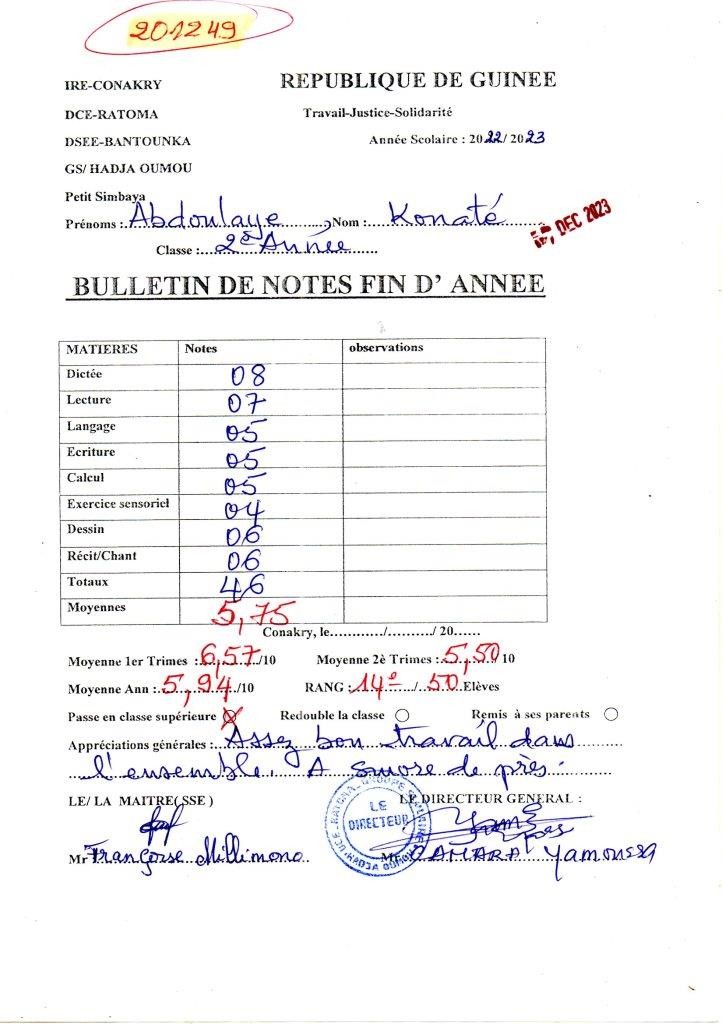 201249
IRE-CONAKRY REPUBLIQUE DE GUINEE
DCE-RATOMA Travail-Justice-Solidarité
DSEE-BANTOUNKA Année Scolaire : 2022/ 2023
GS/ HADJA OUMOU
Petit Simbaya
Prénoms : Abdoulaye Nom : Konaté
DEC 2023
Classe : 2è Année
BULLETIN DE NOTES FIN D' ANNEE
MATIERES Notes observations
Dictée 08
Lecture 07
Langage 05
Ecriture 05
Calcul 05
Exercice sensoriel 04
Dessin 06
Récit/Chant 06
Totaux 46
Moyennes 5,75
Conakry, le............/........../ 20......
Moyenne 1er Trimes : 6,57/10 Moyenne 2è Trimes : 5,50/ 10
Moyenne Ann : 5,94/10 RANG : 14e/ 50 Elèves
Passe en classe supérieure Redouble la classe Remis à ses parents
Appréciations générales : Assez bon travail dans
l'ensemble. A suivre de près.
LE/ LA MAITRE(SSE ) LE DIRECTEUR GENERAL :
LE
DIRECTEUR
Mr Françoise Millimono Mr CAMARA Yamoussa